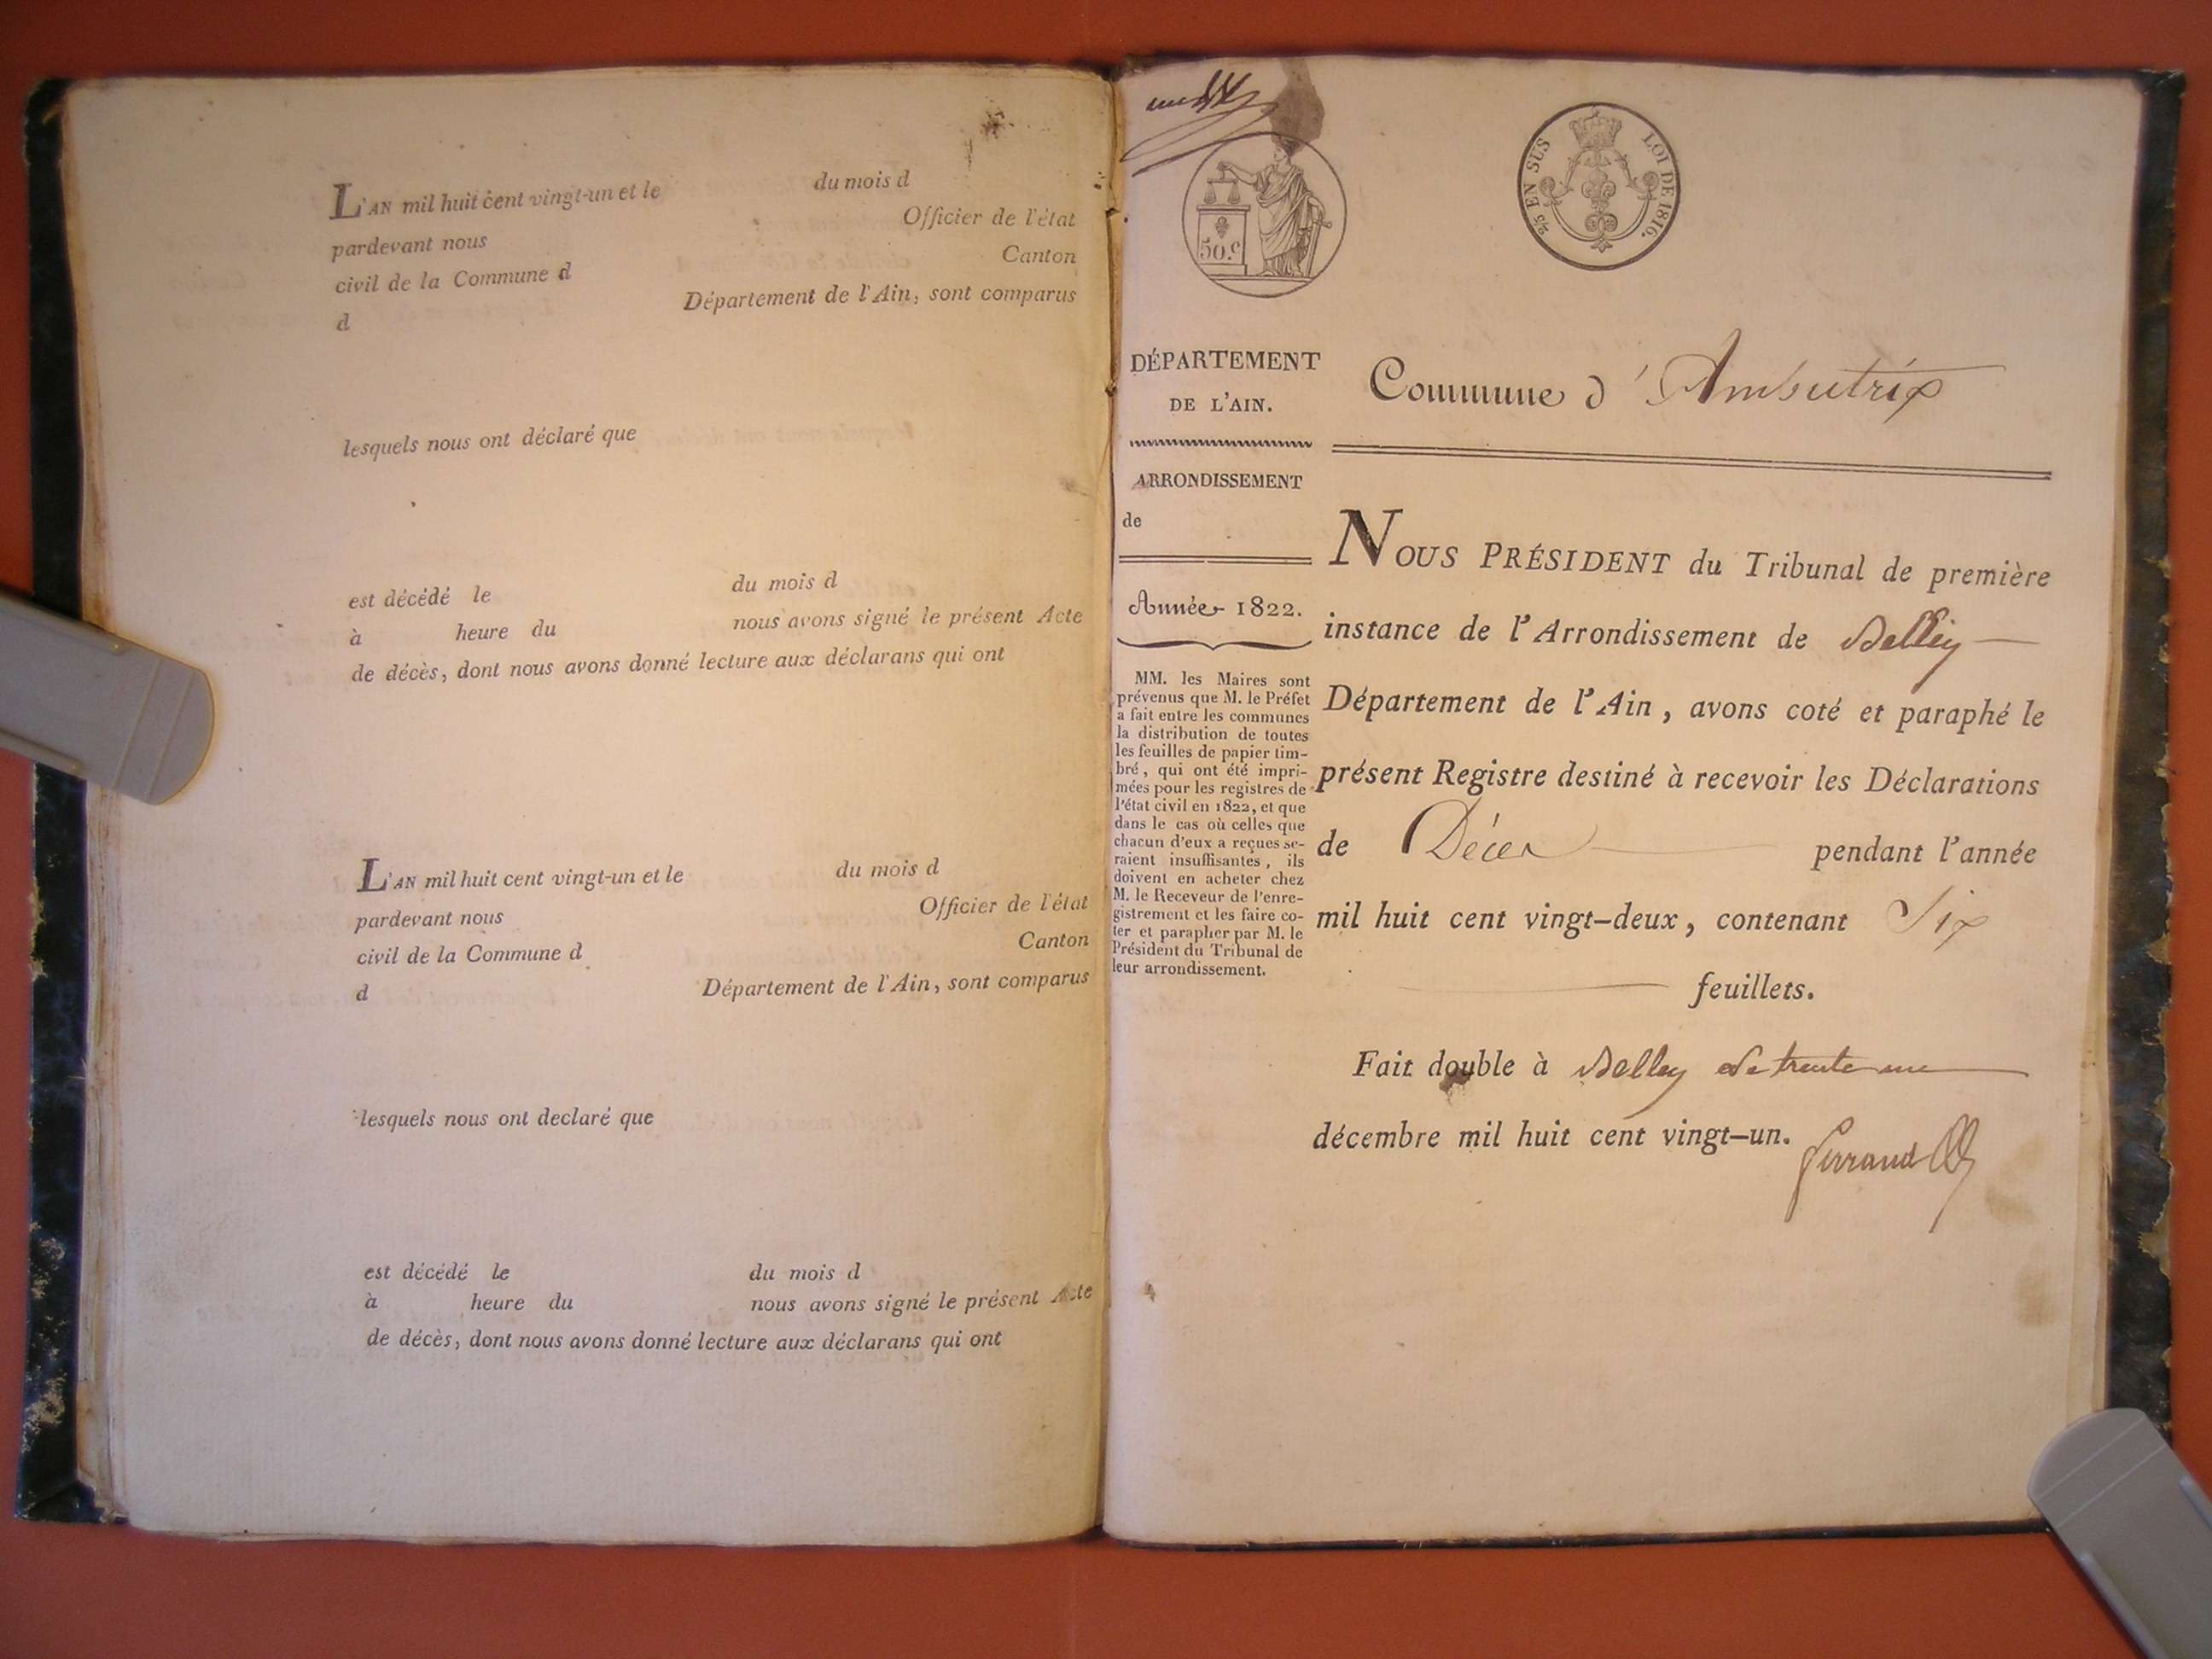 L'AN mil huit cent vingt-un et le du mois d
pardevant nous Officier de l'état
civil de la Commune d Canton
d Département de l'Ain, sont comparus
lesquels nous ont déclaré que
est décédé le du mois d
à heure du nous avons signé le présent Acte
de décès, dont nous avons donné lecture aux déclarans qui ont
L'AN mil huit cent vingt-un et le du mois d
pardevant nous Officier de l'état
civil de la Commune d Canton
d Département de l'Ain, sont comparus
lesquels nous ont declaré que
est décédé le du mois d
à heure du nous avons signé le présent Acte
de décès, dont nous avons donné lecture aux déclarans qui ont
50.c
2/5 EN SUS LOI DE 1816.
DÉPARTEMENT
DE L'AIN.
ARRONDISSEMENT
de
Année 1822.
MM. les Maires sont
prévenus que M. le Préfet
a fait entre les communes
la distribution de toutes
les feuilles de papier tim-
bré, qui ont été impri-
mées pour les registres de
l'état civil en 1822, et que
dans le cas où celles que
chacun d'eux a reçues se-
raient insuffisantes, ils
doivent en acheter chez
M. le Receveur de l'enre-
gistrement et les faire co-
ter et parapher par M. le
Président du Tribunal de
leur arrondissement.
Commune d'Ambutrix
NOUS PRÉSIDENT du Tribunal de première
instance de l'Arrondissement de Belley
Département de l'Ain, avons coté et paraphé le
présent Registre destiné à recevoir les Déclarations
de Décès pendant l'année
mil huit cent vingt-deux, contenant Six
feuillets.
Fait double à Belley le trente un
décembre mil huit cent vingt-un.